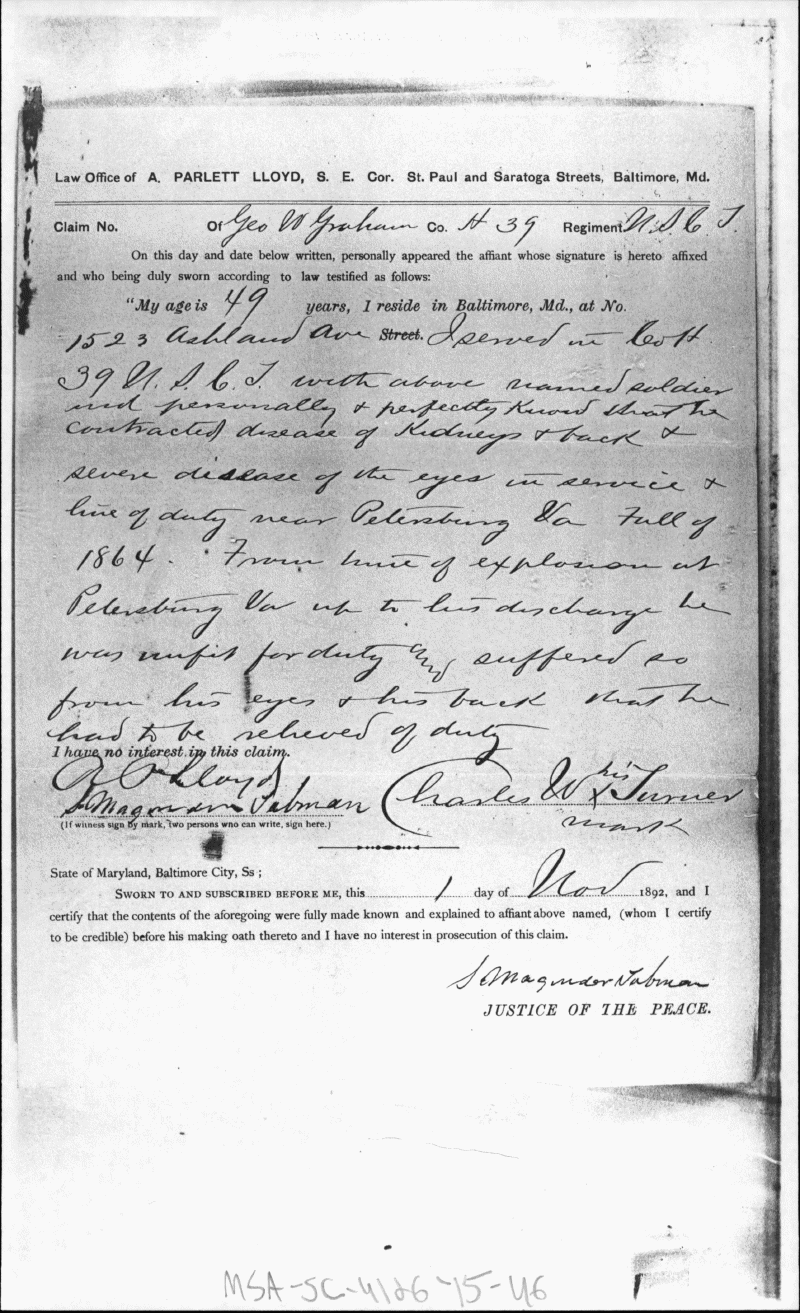 Law Office of A. PARLETT LLOYD, S. E. Cor. St. Paul and Saratoga Streets, Baltimore, Md.
Claim No. Of Geo W Graham Co. H 39 Regiment U. S. C T.
On this day and date below written, personally appeared the affiant whose signature is hereto affixed
and who being duly sworn according to law testified as follows:
"My age is 49 years, I reside in Baltimore, Md., at No.
1523 Ashland Ave Street. I served in Co H
39 U. S. C. T. with above named soldier
and personally & perfectly know that he
contracted disease of Kidneys & back &
severe disease of the eyes in service &
line of duty near Petersburg Va Fall of
1864. From time of explosion at
Petersburg Va up to his discharge he
was unfit for duty and suffered so
from his eyes & his back that he
had to be relieved of duty
I have no interest in this claim.
A P Lloyd
S. Magruder Tubman Charles W his x mark Turner
(If witness sign by mark, two persons who can write, sign here.)
State of Maryland, Baltimore City, Ss ;
SWORN TO AND SUBSCRIBED BEFORE ME, this 1 day of Nov 1892, and I
certify that the contents of the aforegoing were fully made known and explained to affiant above named, (whom I certify
to be credible) before his making oath thereto and I have no interest in prosecution of this claim.
S. Magruder Tubman
JUSTICE OF THE PEACE.
MSA-SC-4126-15-46